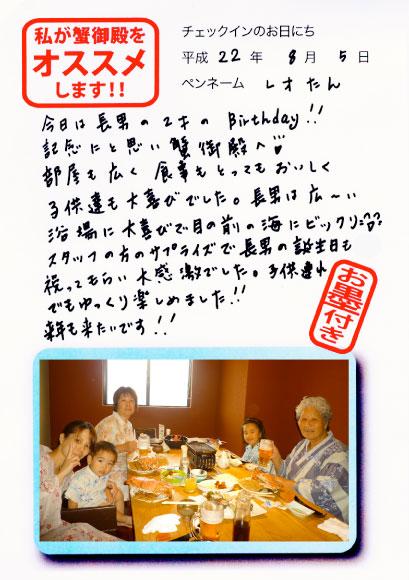 私が蟹御殿を
オススメ
します!!
チェックインのお日にち
平成 22 年 8 月 5 日
ペンネーム レオたん
今日は長男の2才のBirthday!!
記念にと思い蟹御殿へ♡
部屋も広く食事もとってもおいしく
子供達も大喜びでした。長男は広〜い
浴場に大喜びで目の前の海にビックリ
スタッフの方のサプライズで長男の誕生日も
祝ってもらい大感激でした。子供達れ
でもゆっくり楽しめました!!
来年も来たいです!!
お墨付き